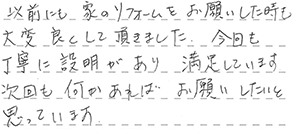 以前にも 家のリフォームをお願いした時も
大変良くして頂きました。今回も
丁寧に説明があり 満足しています
次回も何かあれば お願いしたいと
思っています。